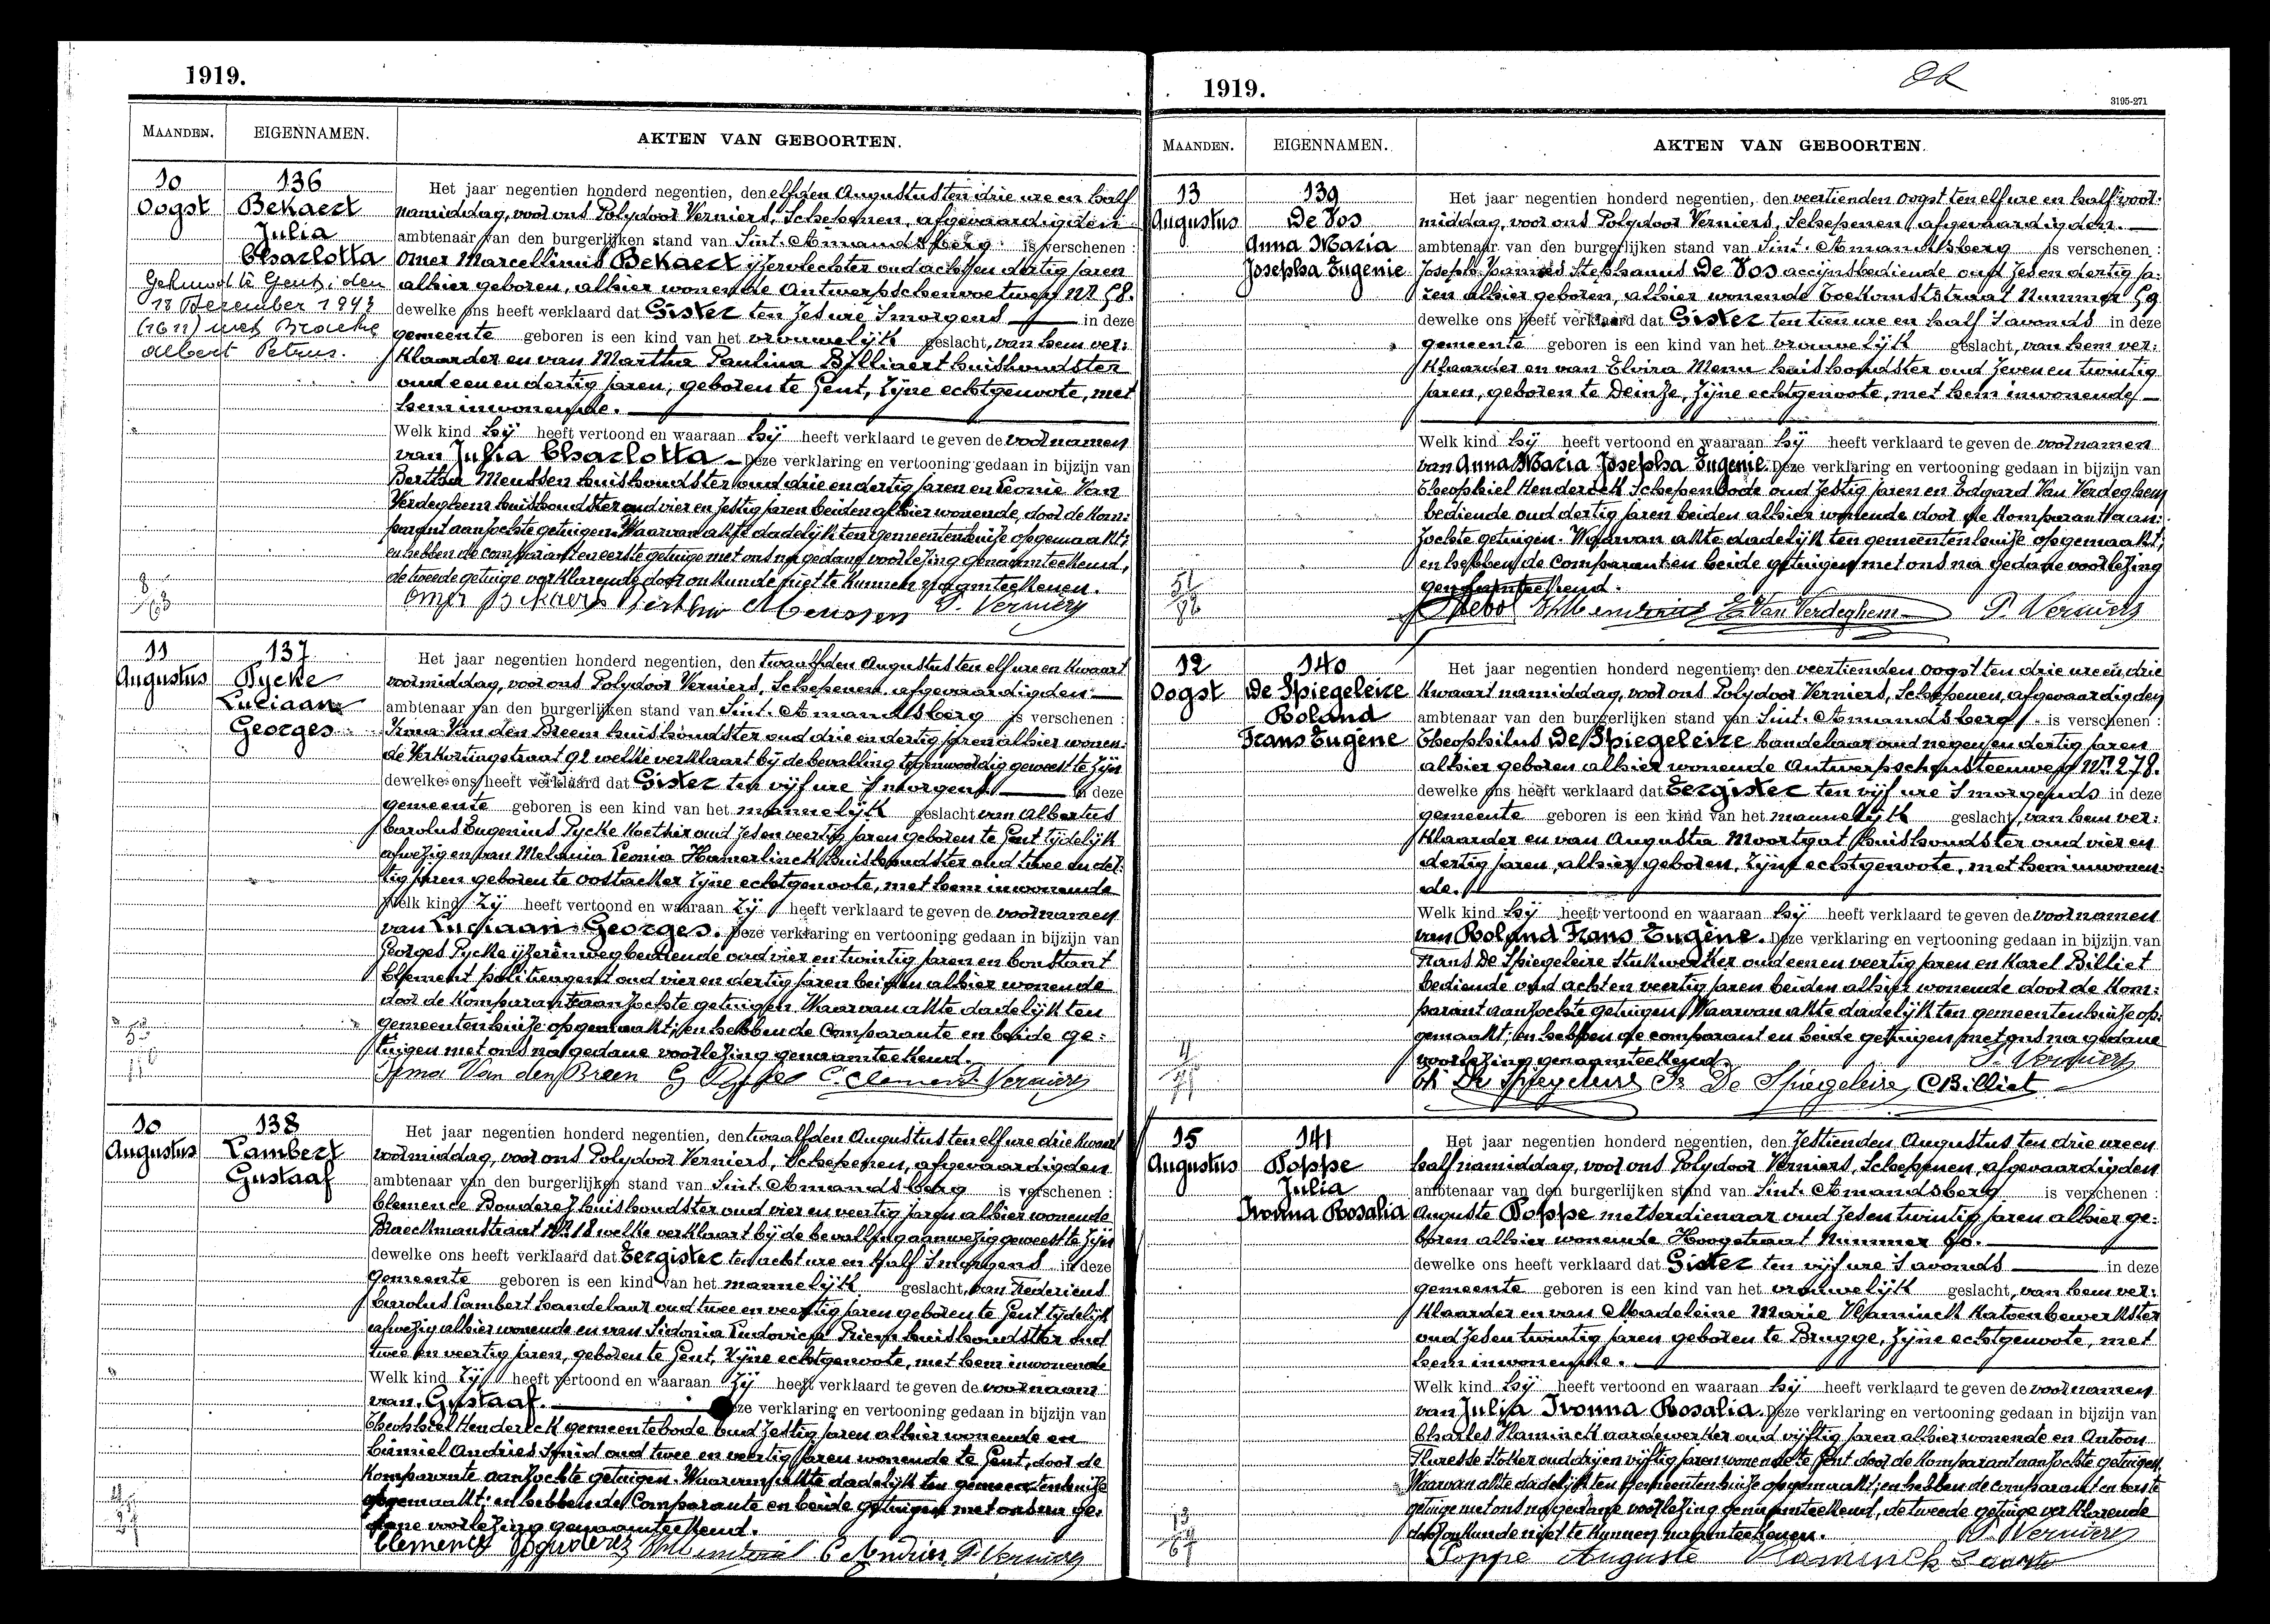 1919.
MAANDEN. EIGENNAMEN. AKTEN VAN GEBOORTEN.
10 Oogst
136
Bekaert
Julia
Charlotta
Gehuwd te Gent, den
18 December 1943
met Braeckel
Albert Petrus.
Het jaar negentien honderd negentien, den elfden Augustus ten drie ure en half
namiddag, voor ons Polydoor Verniers, Schepenen, afgevaardigden
ambtenaar van den burgerlijken stand van Sint-Amandsberg is verschenen :
Omer Marcellinus Bekaert ijzervlechter oud acht en dertig jaren
alhier geboren, alhier wonende Antwerpschenvoetweg Nr 58.
dewelke ons heeft verklaard dat Gister ten zes ure 's morgens in deze
gemeente geboren is een kind van het vrouwelijk geslacht, van hem ver:
klaarder en van Martha Paulina Billiaert huishoudster
oud een en dertig jaren, geboren te Gent, zijne echtgenoote, met
hem inwonende.
Welk kind hij heeft vertoond en waaraan hij heeft verklaard te geven de voornamen
van Julia Charlotta Deze verklaring en vertooning gedaan in bijzijn van
Bertha Meussen huishoudster oud drie en dertig jaren en Leonie Van
Verdeghem huishoudster oud vier en zestig jaren beiden alhier wonende, door de Kom:
parant aanzochte getuigen. Waarvan akte dadelijk ten gemeentenhuize opgemaakt;
en hebben de comparant en eerste getuige met ons na gedane voorlezing genaamteekend,
de tweede getuige verklarende door onkunde niet te kunnen naamteekenen.
Omer Bekaert Bertha Meussen P. Verniers
11 Augustus
137
Pycke
Luciaan
Georges
Het jaar negentien honderd negentien, den twaalfden Augustus ten elf ure en kwaart
voormiddag, voor ons Polydoor Verniers, Schepenen, afgevaardigden
ambtenaar van den burgerlijken stand van Sint-Amandsberg is verschenen :
Irma Van den Breen huishoudster oud drie en dertig jaren alhier wonen:
de Verkortingstraat 92 welke verklaart bij de bevalling tegenwoordig geweest te zijn
dewelke ons heeft verklaard dat Gister ten vijf ure 's morgens in deze
gemeente geboren is een kind van het mannelijk geslacht van Albertus
Carolus Eugenius Pycke oud zes en veertig jaren geboren te Gent tijdelijk
afwezig en van Melania Leonia Hamerlinck huishoudster oud twee en der:
tig jaren geboren te Oostacker zijne echtgenoote, met hem inwonende
Welk kind zij heeft vertoond en waaraan zij heeft verklaard te geven de voornamen
van Luciaan Georges. Deze verklaring en vertooning gedaan in bijzijn van
Georges Pycke ijzerenwegbediende oud vier en twintig jaren en Constant
Clement politieagent oud vier en dertig jaren beiden alhier wonende
door de Komparante aanzochte getuigen Waarvan akte dadelijk ten
gemeentenhuize opgemaakt; en hebben de Comparante en beide ge:
tuigen met ons na gedane voorlezing genaamteekend.
Irma Van den Breen G Pycke C. Clement P. Verniers
10 Augustus
138
Lambert
Gustaaf
Het jaar negentien honderd negentien, den twaalfden Augustus ten elf ure drie kwaart
voormiddag, voor ons Polydoor Verniers, Schepenen, afgevaardigden
ambtenaar van den burgerlijken stand van Sint-Amandsberg is verschenen :
Clemence Bouderez huishoudster oud vier en veertig jaren alhier wonende
Braeckmanstraat Nr 18 welke verklaart bij de bevalling aanwezig geweest te zijn
dewelke ons heeft verklaard dat Eergister ten acht ure en half 's morgens in deze
gemeente geboren is een kind van het mannelijk geslacht, van Fredericus
Carolus Lambert handelaar oud twee en veertig jaren geboren te Gent tijdelijk
afwezig alhier wonende en van Sidonia Ludovica Priem huishoudster oud
twee en veertig jaren, geboren te Gent, zijne echtgenoote, met hem inwonende
Welk kind zij heeft vertoond en waaraan zij heeft verklaard te geven de voornaam
van Gustaaf. Deze verklaring en vertooning gedaan in bijzijn van
Theophiel Henderick gemeentebode oud zestig jaren alhier wonende en
Camiel Andries smid oud twee en veertig jaren wonende te Gent, door de
Komparante aanzochte getuigen. Waarvan akte dadelijk ten gemeentenhuize
opgemaakt; en hebben de Comparante en beide getuigen met ons na ge:
dane voorlezing genaamteekend.
Clemence Bouderez C Andries P. Verniers
1919.
3195-271
MAANDEN. EIGENNAMEN. AKTEN VAN GEBOORTEN.
13 Augustus
139
De Vos
Anna Maria
Josepha Eugenie
Het jaar negentien honderd negentien, den veertienden oogst ten elf ure en half voor:
middag, voor ons Polydoor Verniers, Schepenen afgevaardigden.
ambtenaar van den burgerlijken stand van Sint-Amandsberg is verschenen :
Joseph Stephanus De Vos accijnsbediende oud zes en dertig ja:
ren alhier geboren, alhier wonende Toekomststraat Nummer 59
dewelke ons heeft verklaard dat Gister ten tien ure en half 's avonds in deze
gemeente geboren is een kind van het vrouwelijk geslacht, van hem ver:
klaarder en van Elvira Menu huishoudster oud zeven en twintig
jaren, geboren te Deinze, zijne echtgenoote, met hem inwonende
Welk kind hij heeft vertoond en waaraan hij heeft verklaard te geven de voornamen
van Anna Maria Josepha Eugenie. Deze verklaring en vertooning gedaan in bijzijn van
Theophiel Henderick Schepenbode oud zestig jaren en Edgard Van Verdeghem
bediende oud dertig jaren beiden alhier wonende door de Komparant aan:
zochte getuigen. Waarvan akte dadelijk ten gemeentenhuize opgemaakt;
en hebben de Comparant en beide getuigen met ons na gedane voorlezing
genaamteekend.
E Van Verdeghem P. Verniers
12 Oogst
140
De Spiegeleire
Roland
Frans Eugène
Het jaar negentien honderd negentien, den veertienden oogst ten drie ure en drie
kwaart namiddag, voor ons Polydoor Verniers, Schepenen, afgevaardigden
ambtenaar van den burgerlijken stand van Sint-Amandsberg is verschenen :
Theophilus De Spiegeleire handelaar oud negen en dertig jaren
alhier geboren alhier wonende Antwerpschensteenweg Nr 278.
dewelke ons heeft verklaard dat Eergister ten vijf ure 's morgends in deze
gemeente geboren is een kind van het mannelijk geslacht, van hem ver:
klaarder en van Augusta Moortgat huishoudster oud vier en
dertig jaren, alhier geboren, zijne echtgenoote, met hem inwonen:
de.
Welk kind hij heeft vertoond en waaraan hij heeft verklaard te geven de voornamen
van Roland Frans Eugène. Deze verklaring en vertooning gedaan in bijzijn van
Frans De Spiegeleire stukwerker oud een en veertig jaren en Karel Billiet
bediende oud acht en veertig jaren beiden alhier wonende door de Kom:
parant aanzochte getuigen Waarvan akte dadelijk ten gemeentenhuize op:
gemaakt; en hebben de comparant en beide getuigen met ons na gedane
voorlezing genaamteekend. P. Verniers
Th De Spiegeleire Fr De Spiegeleire CBilliet
15 Augustus
141
Poppe
Julia
Ivonna Rosalia
Het jaar negentien honderd negentien, den zestienden Augustus ten drie ure en
half namiddag, voor ons Polydoor Verniers, Schepenen, afgevaardigden
ambtenaar van den burgerlijken stand van Sint-Amandsberg is verschenen :
Auguste Poppe metserdienaar oud zes en twintig jaren alhier ge:
boren alhier wonende Hoogstraat Nummer 60.
dewelke ons heeft verklaard dat Gister ten vijf ure 's avonds in deze
gemeente geboren is een kind van het vrouwelijk geslacht, van hem ver:
klaarder en van Madeleine Marie Vlaminck katoenbewerkster
oud zes en twintig jaren geboren te Brugge, zijne echtgenoote, met
hem inwonende.
Welk kind hij heeft vertoond en waaraan hij heeft verklaard te geven de voornamen
van Julia Ivonna Rosalia. Deze verklaring en vertooning gedaan in bijzijn van
Charles Vlaminck aardewerker oud vijftig jaren alhier wonende en Antoon
stoker oud drij en vijftig jaren wonende te Gent door de Komparant aanzochte getuigen.
Waarvan akte dadelijk ten gemeentenhuize opgemaakt; en hebben de comparant en eerste
getuige met ons na gedane voorlezing genaamteekend, de tweede getuige verklarende
door onkunde niet te kunnen naamteekenen. P. Verniers
Poppe Auguste Vlaminck